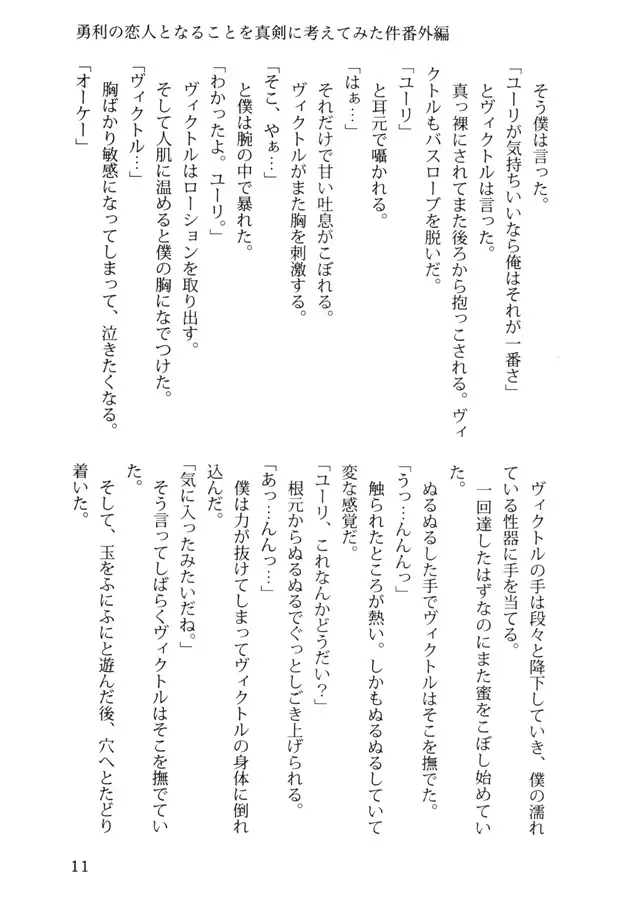 勇利の恋人となることを真剣に考えてみた件番外編
そう僕は言った。
「ユーリが気持ちいいなら俺はそれが一番さ」
とヴィクトルは言った。
真っ裸にされてまた後ろから抱っこされる。ヴィ
クトルもバスローブを脱いだ。
「ユーリ」
と耳元で囁かれる。
「はぁ…」
それだけで甘い吐息がこぼれる。
ヴィクトルがまた胸を刺激する。
「そこ、やぁ…」
と僕は腕の中で暴れた。
「わかったよ。ユーリ。」
ヴィクトルはローションを取り出す。
そして人肌に温めると僕の胸になでつけた。
「ヴィクトル…」
胸ばかり敏感になってしまって、泣きたくなる。
「オーケー」
ヴィクトルの手は段々と降下していき、僕の濡れ
ている性器に手を当てる。
一回達したはずなのにまた蜜をこぼし始めてい
た。
ぬるぬるした手でヴィクトルはそこを撫でた。
「うっ…んんんっ」
触られたところが熱い。しかもぬるぬるしていて
変な感覚だ。
「ユーリ、これなんかどうだい？」
根元からぬるぬるでぐっとしごき上げられる。
「あっ…んんっ…」
僕は力が抜けてしまってヴィクトルの身体に倒れ
込んだ。
「気に入ったみたいだね。」
そう言ってしばらくヴィクトルはそこを撫でてい
た。
そして、玉をふにふにと遊んだ後、穴へとたどり
着いた。
11